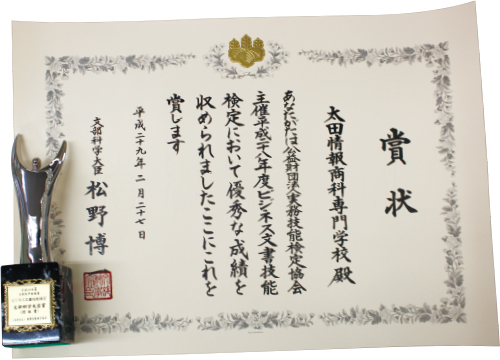 賞状
太田情報商科専門学校 殿
あなたがたは公益財団法人実務技能検定協会
主催平成二十八年度ビジネス文書技能
検定において優秀な成績を
収められましたここにこれを
賞します
平成二十九年二月二十七日
文部科学大臣 松野博
文部科学大臣賞